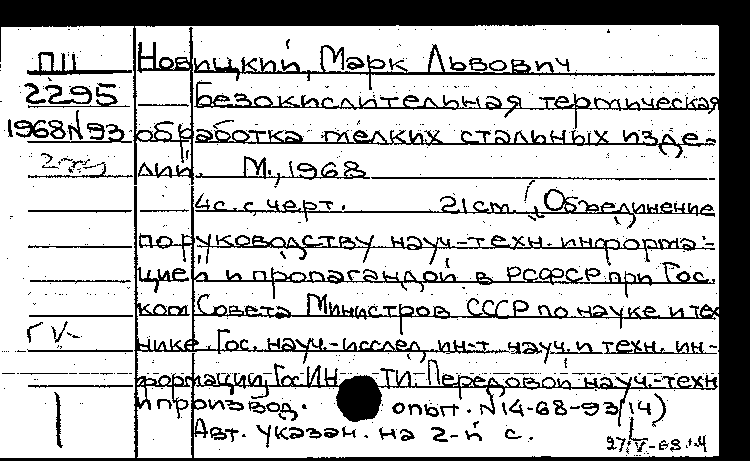 ПII Новицкий, Марк Львович
2295 Безокислительная термическая
1968 N 93 обработка мелких стальных изде-
лий. М., 1968
4с. с черт. 21 см. (Объединение
по руководству науч.-техн. информа-
цией и пропагандой в РСФСР при Гос.
ком Совета Министров СССР по науке и тех
нике. Гос. науч.-исслед. ин-т науч. и техн. ин-
формации, ГосИНТИ. Передовой науч.-техн
и производ. опыт. N 14-68-93/14)
Авт. указан. на 2-й с.
27/V-68